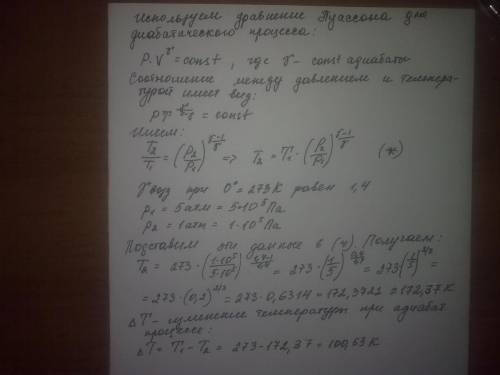 Используем уравнение Пуассона для
диабатического процесса:
P·V^γ = const, где γ - const адиабаты
Соотношение между давлением и темпера-
турой имеет вид:
= const
Имеем:
T₂/T₁ = (P₂/P₁)^((γ-1)/γ) => T₂ = T₁·(P₂/P₁)^((γ-1)/γ) (*)
при 0° = 273 К равен 1,4
P₁ = 5 атм = 5·10⁵ Па
P₂ = 1 атм = 1·10⁵ Па
Подставим эти данные в (*). Получаем:
T₂ = 273·(1·10⁵/5·10⁵) = 273·(1/5) = 273(1/5)^(2/7) =
= 273·(0,2)^(2/7) = 273·0,6314 = 172,3722 = 172,37 К
ΔT - изменение температуры при адиабат
процессе:
ΔT = T₁ - T₂ = 273 - 172,37 = 100,63 К